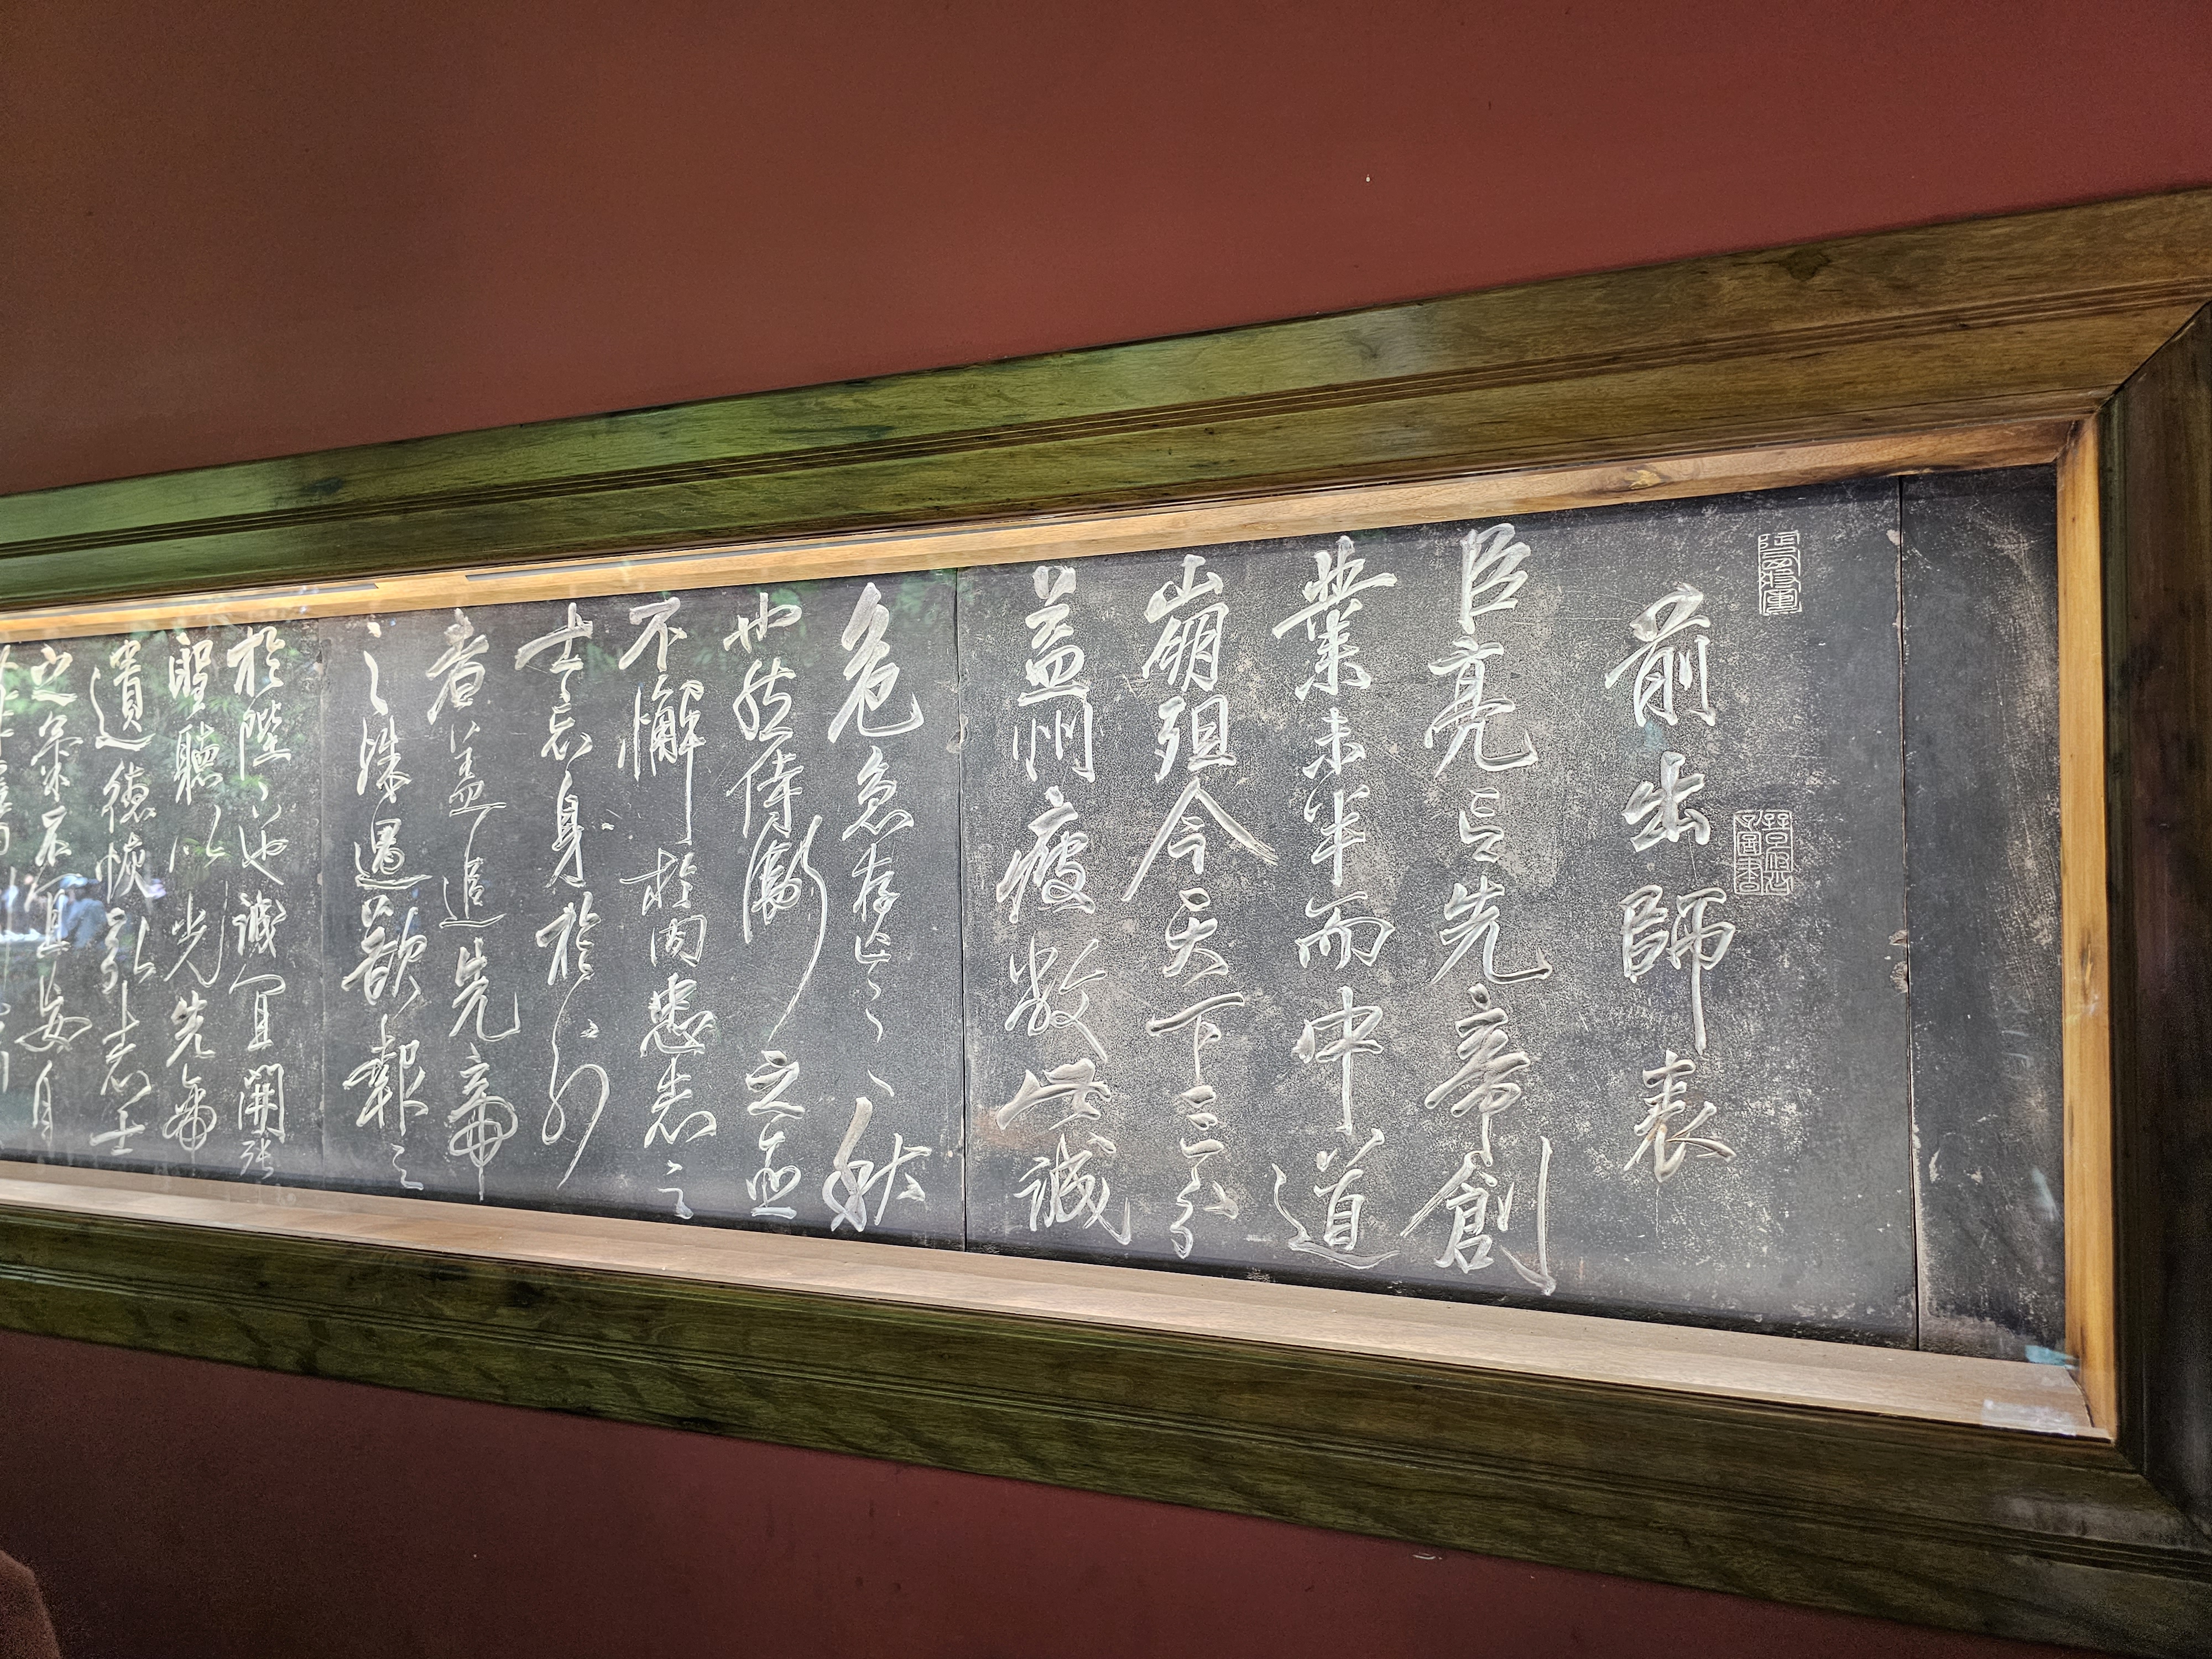 前出師表
臣亮言先帝創
業未半而中道
崩殂今天下三分
益州疲敝此誠
危急存亡之秋
也然侍衛之臣
不懈於内忠志之
士忘身於外
者蓋追先帝
之殊遇欲報之
於陛下也誠宜開張
聖聽以光先帝
遺德恢弘志士
之氣不宜妄自